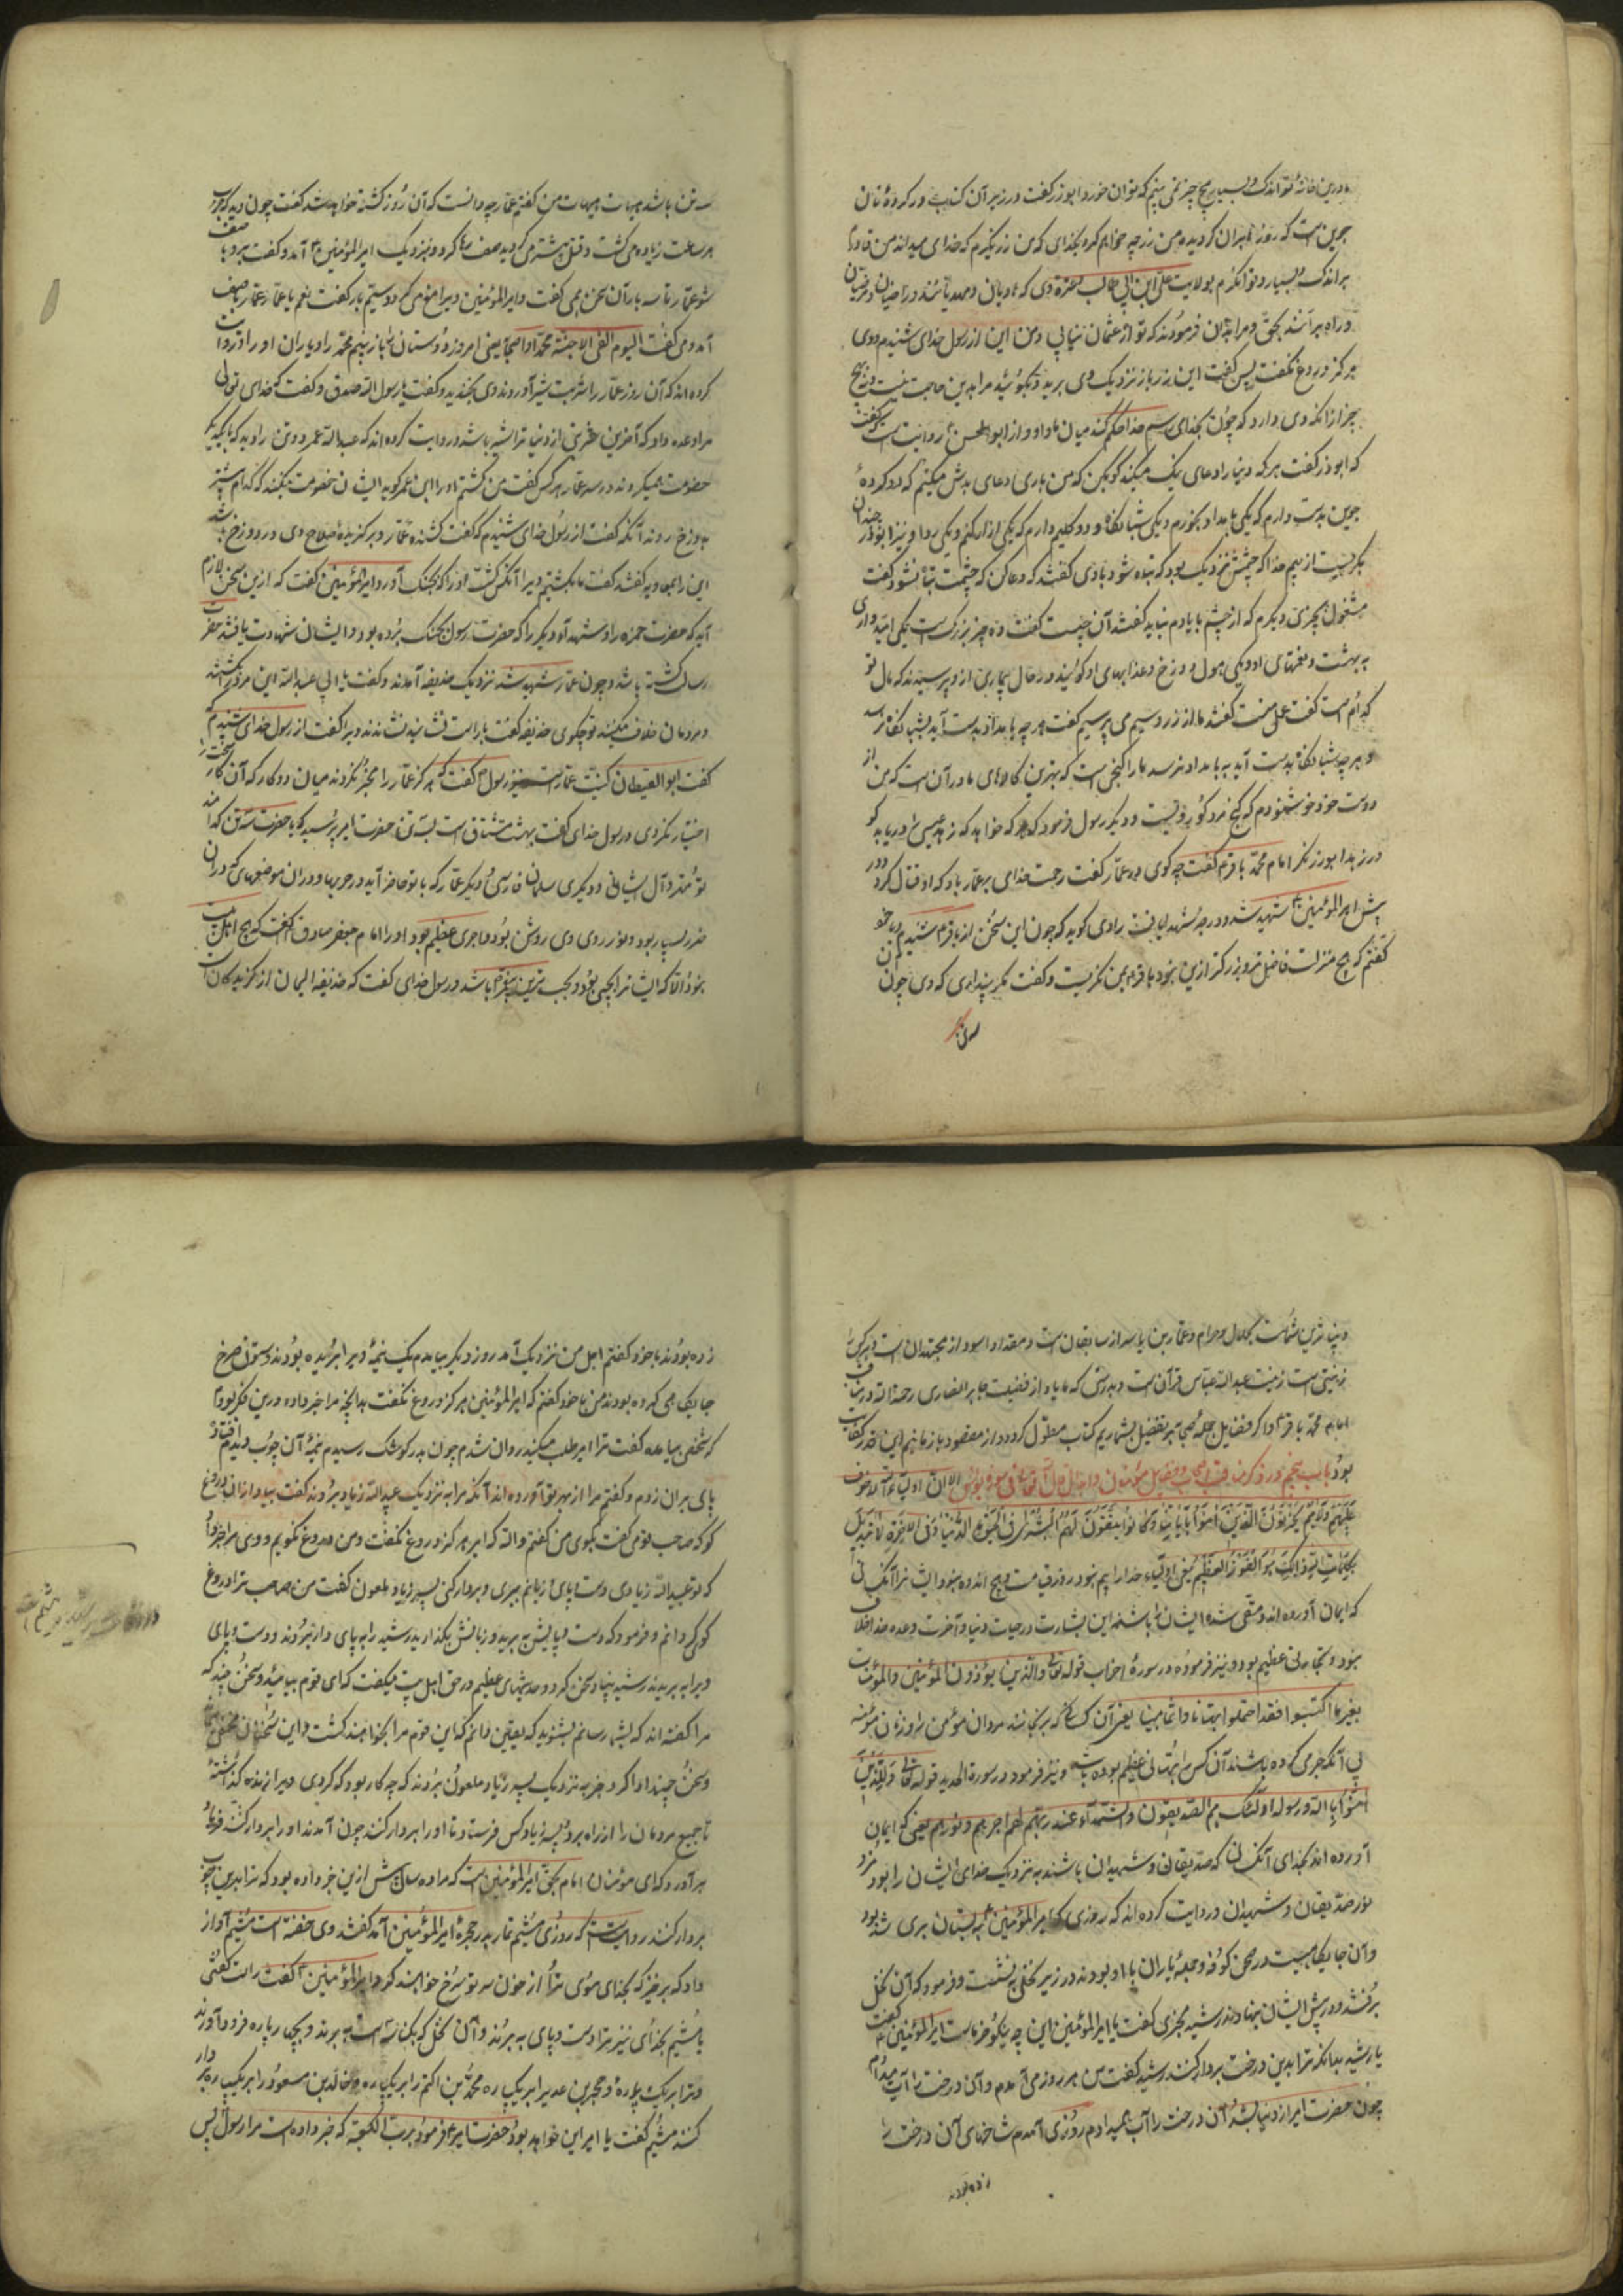 جوین است که روز بران کردیده من زر چه خواهم کرد بخدای که من زر نگیرم که خدای میداند من قادرم
بر اندک و بسیار و توانگرم بولایت علی ابن ابی طالب و عترة وی که هادیان و مهدیانند و راضیان و مرضیان
و راه برانند بحق و مرا بدان فرمودند که تو از عثمان نیابی و من این از رسول خدای شنیدم و وی
هرگز دروغ نگفت پس گفت این زر باز نزدیک وی برید و بگوئید مرا بدین حاجت نیست و هیچ
چیز از آنکه وی دارد که چون بخدای رسیم خدا حکم کند میان ما و او و از ابو الحسن روایت است که گفت
که ابوذر گفت هر که دنیا را دعای نیک میکند گو بکن که من باری دعای بدش میکنم که دو گرده
جوین بدست دارم که یکی بامداد بخورم و یکی شبانگاه و دو گلیم دارم که یکی ازار کنم و یکی ردا و نیز ابوذر چندان
بگریست از بیم خدا که چشمش نزدیک بود که تباه شود با وی گفتند که دعا کن که چشمت تباه نشود گفت
مشغول بچیزی دیگرم که از چشم با یادم نیاید گفتند آن چیست گفت دو چیز بزرگست یکی امیدواری
به بهشت و نعمتهای او و یکی هول دوزخ و عذابهای او گویند در حال بیماری از و پرسیدند که مال تو
کدام است گفت عمل منست گفتند ما از زر و سیم می پرسیم گفت هر چه بامداد بدست آید بشبانگاه نرسد
و هر چه شبانگاه بدست آید به بامداد نرسد ما را کنجی است که بهترین کالاهای ما در آن است که من از
دوست خود خوشنودم که گنج مرد گور ویست و دیگر رسول فرمود که هر که خواهد که زهد عیسی دریابد گو
در زهد ابوذر نگر امام محمد باقر گفت چه گوی در عمار گفت رحمت خدای بر عمار باد که او قتال کرد در
پیش امیر المؤمنین شهید شد و درجه شهدا یافت راوی گوید که چون این سخن از باقر شنیدم با خود
گفتم که هیچ منزلت فاضلتر و بزرگتر ازین نبود باقر بمن نگریست و گفت مگر پنداری که وی چون
سه تن باشد هیهات هیهات من گفتم عمار چه دانست که آن روز کشته خواهد شد گفت چون دید که حرب
هر ساعت زیاده می گشت و قتل بیشتر می کردید صف رها کرد و نزدیک امیر المؤمنین آمد و گفت برو با صف
شو عمار تا سه بار آن سخن همی گفت و امیر المؤمنین ویرا همی گفت و سیم بار گفت نعم یا عمار عمار با صف
آمد و می گفت الیوم القی الاحبة محمدا و اصحابه یعنی امروز دوستان را باز بینم محمد را و یاران او را و روایت
کرده اند که آن روز عمار را شربت شیر آوردند وی بخندید و گفت یا رسول الله صدق و گفت که خدای تعالی
مرا وعده داد که آخرین شربتی از دنیا ترا شیر باشد و روایت کرده اند که عبد الله عمر دو تن را دید که با یکدیگر
خصومت همیکردند در سر عمار هر کس گفت من کشتم او را ابن عمر گوید ایشان خصومت میکنند که کدام پیشتر
بدوزخ روند آنکه گفت از رسول خدای شنیدم که گفت کشنده عمار و برکننده سلاح وی در دوزخ باشد
این را بمعاویه گفتند گفت ما نکشتیم ویرا آنکس کشت او را که بجنک آورد امیر المؤمنین گفت که ازین سخن لازم
آید که حضرت حمزه را و شهدای دیگر را که حضرت رسول بجنک برده بود و ایشان شهادت یافتند حضرت
رسالت کشته باشد و چون عمار شهید شد نزدیک حذیفه آمدند و گفت یا ابی عبد الله این مرد کشته شد
و مردمان خلاف میکنند تو چگوی حذیفه گفت مرا راست بنشانید بنشاندند ویرا گفت از رسول خدای شنیدم که
گفت ابو الیقظان کنیت عمار است و نیز رسول گفت که هرگز عمار را مخیر نکردند میان دو کار که آن کار سخت را
اختیار نکردی و رسول خدای گفت بهشت مشتاق است بسه تن حضرت امیر پرسید که یا حضرت سه تن کدامند
تو مقدم آن ایشانی و دیگری سلمان فارسی و دیگر عمار که با تو حاضر آید در حربها و در آن موضعهای که در آن
ضرر بسیار بود و نور روی وی روشن بود و اجری عظیم بود او را امام جعفر صادق گفت که هیچ اهل بیت
نبود الا که ایشانرا نجیبی بود و نجیب ترین و رسول خدای گفت که حذیفة الیمان از گزیدگان
و بیناترین شماست بحلال و حرام و عمار بن یاسر از سابقان است و مقداد اسود از مجتهدان است و هر چیزی را
زینتی است زینت عبد الله عباس قرآن است و بدرستی که ما یاد از فضیلت جابر انصاری رحمة الله دریافت
امام محمد باقر و اگر فضایل جمله صحابه بتفضیل بشماریم کتاب مطول گردد و از مقصود باز مانیم این قدر کفایت
بود باب پنجم در ذکر مناقب و فضایل مؤمنان و احوال قال الله تعالی فی سورة یونس الا ان اولیاء الله لا خوف
علیهم و لا هم یحزنون الذین امنوا و کانوا یتقون لهم البشری فی الحیوة الدنیا و فی الاخرة لا تبدیل
لکلمات الله ذلک هو الفوز العظیم یعنی اولیاء خدا را بیم نبود روز قیامت و هیچ اندوه نبود ایشانرا آنکسانی
که ایمان آورده اند و متقی شدند ایشان را باشد این بشارت در حیات دنیا و آخرت و وعده خدا خلاف
نبود و نجاتی عظیم بود و نیز فرموده در سوره احزاب قوله تعالی و الذین یؤذون المؤمنین و المؤمنات
بغیر ما اکتسبوا فقد احتملوا بهتانا و اثما مبینا یعنی آن کسانی که برنجانند مردان مؤمن را و زنان مؤمنه
بی آنکه جرمی کرده باشند آن کس را بهتانی عظیم بوده باشد و نیز فرمود در سورة الحدید قوله تعالی و الذین
امنوا بالله و رسوله اولئک هم الصدیقون و الشهداء عند ربهم لهم اجرهم و نورهم یعنی که ایمان
آورده اند بخدای آنکسان که صدیقان و شهیدان باشند به نزدیک خدای ایشان را بود مزد
نور صدیقان و شهیدان و روایت کرده اند که روزی که امیر المؤمنین به بستان بری شد بود
و آن جایگاهیست در صحن کوفه و جمله یاران با او بودند در زیر نخلی به نشست و فرمود که آن نخل
برفشند و در پیش ایشان بنهادند رشید هجری گفت یا امیر المؤمنین این چه نیکو خرماست امیر المؤمنین گفت
یا رشید بدانکه ترا بدین درخت بردار کنند رشید گفت من هر روز می آمدم و آن درخت را آب میدادم
چون حضرت امیر از دنیا بشد آن درخت را آب همیدادم روزی آمدم شاخهای آن درخت را
زده بودند
زده بودند با خود گفتم اجل من نزدیک آمد روز دیگر بیامدم یک نیمه ویرا بریده بودند و ستون چرخ
جایگاهی کرده بودند من با خود گفتم که امیر المؤمنین هرگز دروغ نگفت بدانچه مرا خبر داده درین فکر بودم
که شخصی بیامد گفت ترا امیر طلب میکند روان شدم چون بدر کوشک رسیدم نیمه آن چوب دیدم افتاده
پای بران زدم و گفتم مرا از بهر تو آورده اند آنکه مرا به نزدیک عبید الله زیاد بردند گفت بیاور از آن دروغ
گو که صاحب تو می گفت بگوی من گفتم و الله که امیر هرگز دروغ نگفت و من دروغ نگویم و وی مرا خبر داد
که تو عبید الله زیادی دست و پای و زبانم ببری و بردار کنی پسر زیاد ملعون گفت من صاحب ترا دروغ
گوی گردانم و فرمود که دست و پایش به برید و زبانش بگذارید رشید را به پای دار بردند و دست و پای
ویرا به بریدند رشید بنیاد سخن کرد و حدیثهای عظیم در حق اهل بیت میگفت که ای قوم بیائید و سخن چند که
مرا گفته اند که بشما رسانم بشنوید که یقین دانم که این قوم مرا بخواهند کشت و این سخنان مخفی
و سخن چند ادا کرد و خبر به نزدیک پسر زیاد ملعون بردند که چه کار بود که کردی ویرا زنده گذاشته
تا جمیع مردمان را از راه برد پسر زیاد کس فرستاد تا او را بردار کنند چون آمدند او را بردار کشند فریاد
برآورد که ای مؤمنان امام بحق امیر المؤمنین است که مرا ده سال پیش ازین خبر داده بود که ترا بدین چوب
بردار کنند روایت است که روزی میثم تمار بدر حجره امیر المؤمنین آمد گفتند وی خفته است میثم آواز
داد که برخیز که بخدای موی ترا از خون سر تو سرخ خواهند کرد امیر المؤمنین گفت راست گفتی
یا میثم بخدای نیز ترا دست و پای به برند و آن نخل که به برند و بچهار پاره فرود آورند
و ترا بر یک پاره و حجر بن عدی را بر یک پاره محمد بن اکثم را بر یک پاره و خالد بن مسعود را بر یک پاره بر دار
کنند میثم گفت یا امیر این خواهد بود حضرت امیر فرمود برب الکعبه که خبر داده است مرا رسول پس